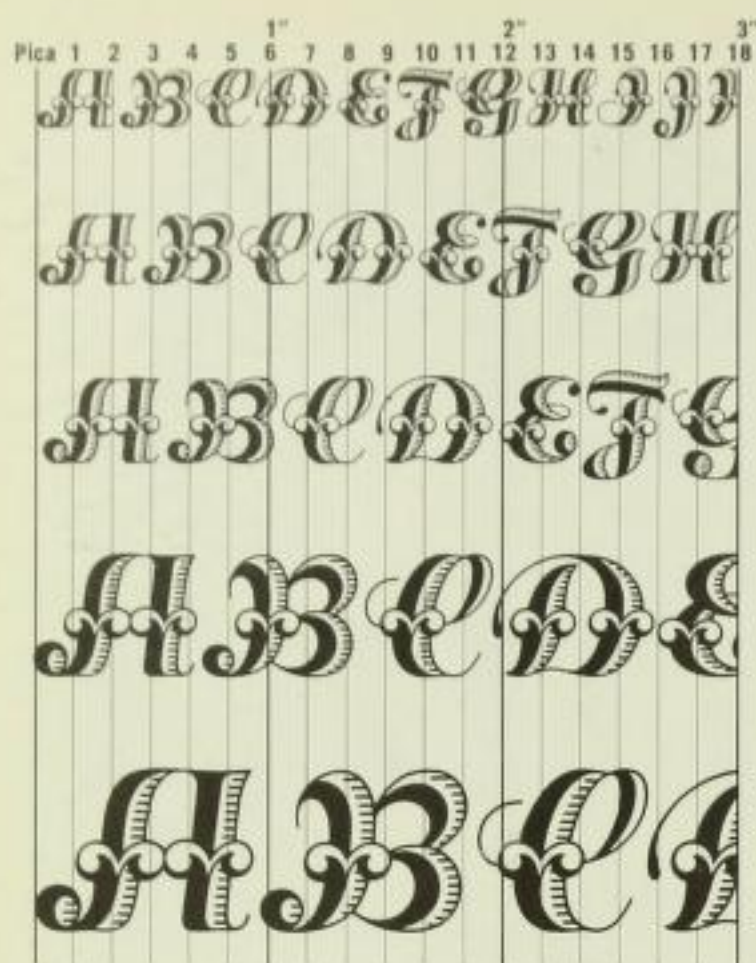 1" 2" 3"
Pica 1 2 3 4 5 6 7 8 9 10 11 12 13 14 15 16 17 18
A B C D E F G H I J
A B C D E F G H
A B C D E F G
A B C D E
A B C D